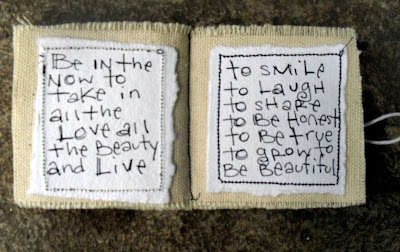 Be IN the
NOW to
take in
all the
Love all
the Beauty
and Live
to SMILE
to LAUGH
to SHARE
to Be Honest
to Be true
to grow to
Be Beautiful